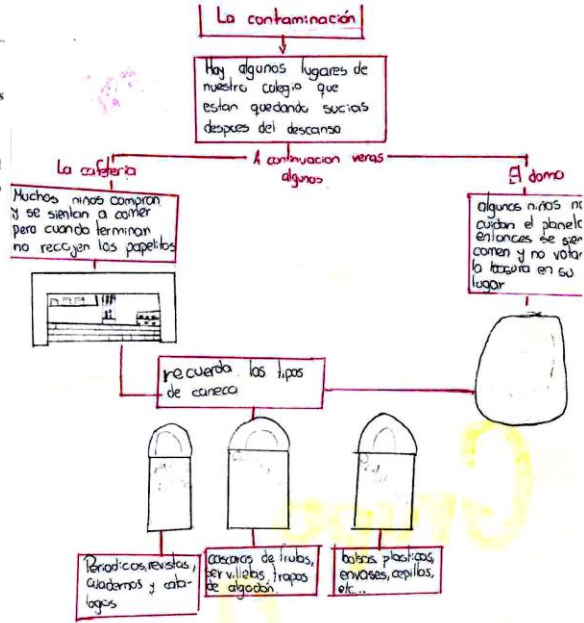 La contaminación
Hay algunos lugares de
nuestro colegio que
estan quedando sucias
despues del descanso
A continuacion veras
algunos
La cafeteria
Muchos niños compran
y se sientan a comer
pero cuando terminan
no recojen los papelitos
El domo
algunos niños no
cuidan el planeta
entonces se sien
comen y no votan
la basura en su
lugar
recuerda los tipos
de caneca
Periodicos, revistas,
cuadernos y cata-
logos
cascaras de frutas,
servilletas, trapos
de algodón
bolsas plasticas,
envases, cepillos,
etc...